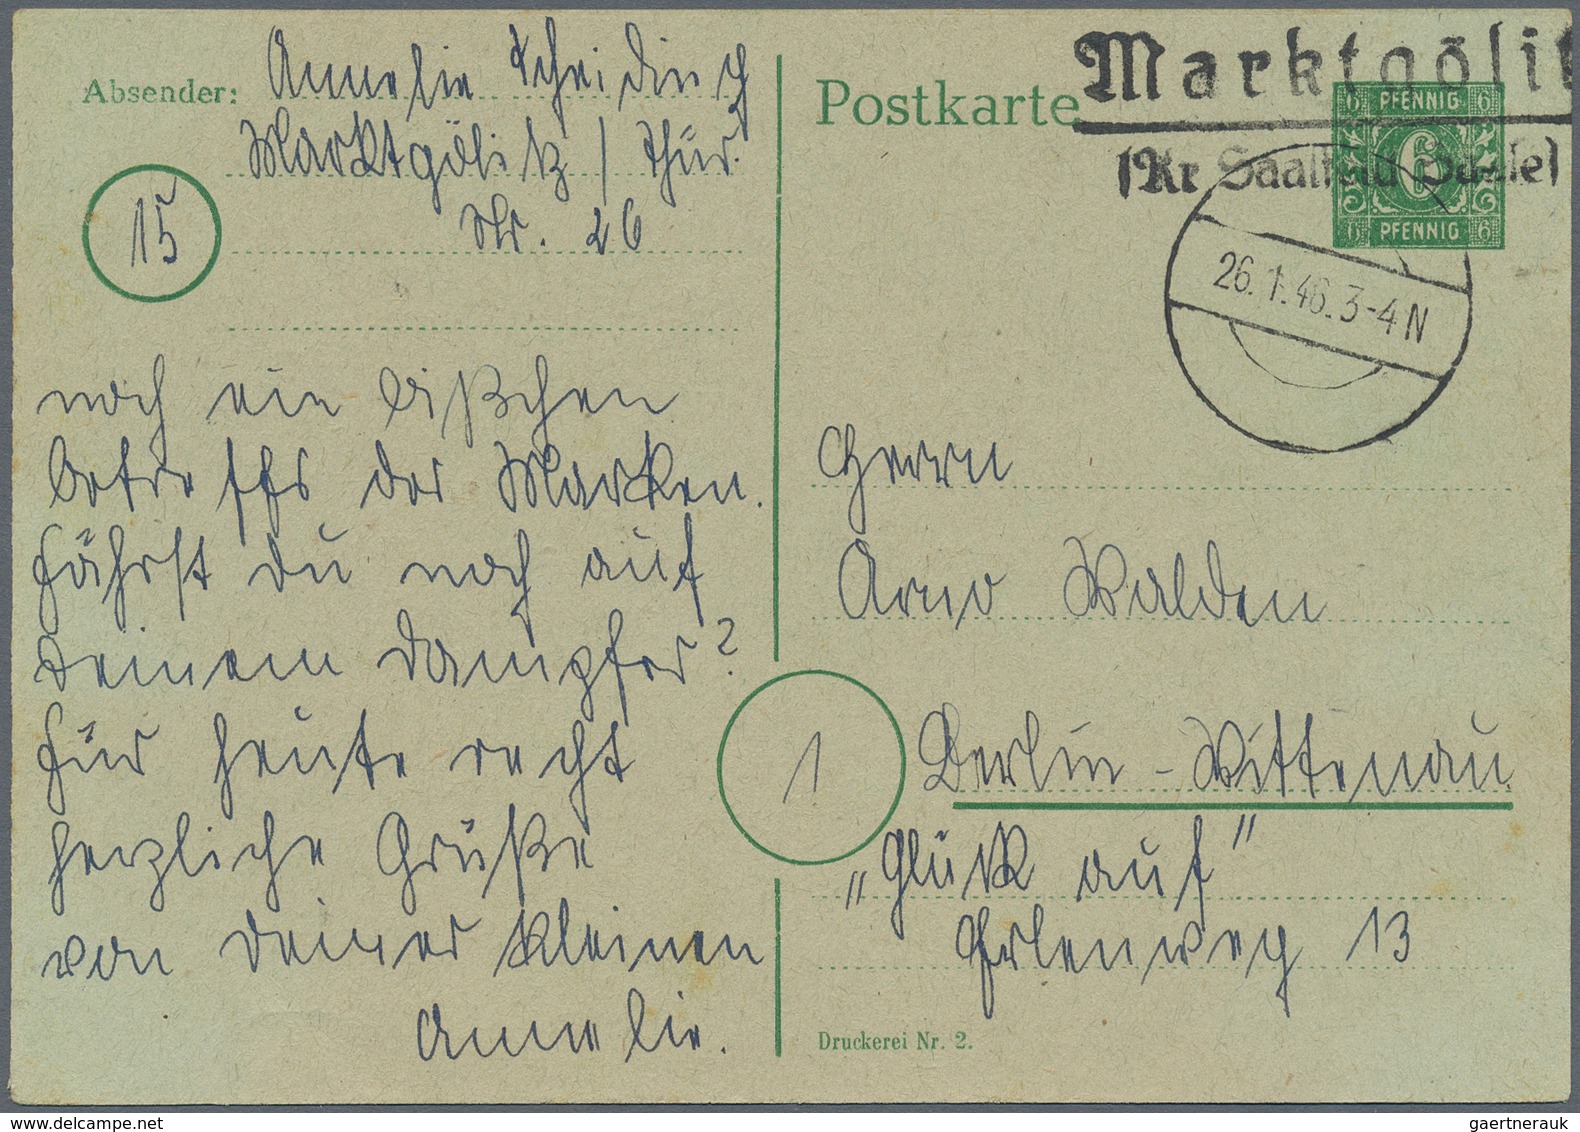 Absender: Annelie Scheiding
Marktgölitz / Thür.
Nr. 26
15
noch ein bißchen
betreffs der Marken.
Fährst du noch auf
Deinem Dampfer?
Für heute recht
herzliche Grüße
von Deiner kleinen
Annelie.
Postkarte
Marktgölit
(Kr Saalfeld Saale)
6 PFENNIG 6
6
6 PFENNIG 6
26.1.46.3-4N
Herrn
Arno Walden
1
Berlin-Wittenau
„Glück auf"
Erlenweg 13
Druckerei Nr. 2.
gaertnerauk @ delcampe.net